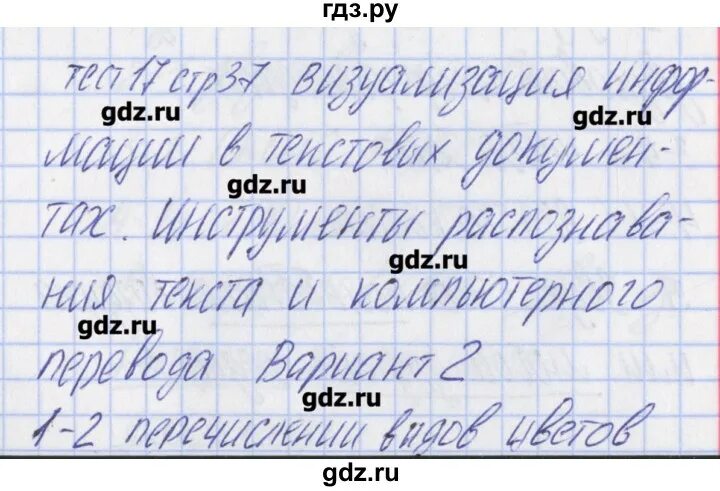 гдз.ру
тест 17 стр 37 визуализация инфор-
gdz.ru
gdz.ru
мации в текстовых докумен-
gdz.ru
тах. Инструменты распознава-
gdz.ru
ния текста и компьютерного
gdz.ru
перевода Вариант 2
gdz.ru
1-2 перечислении видов цветов
gdz.ru
gdz.ru